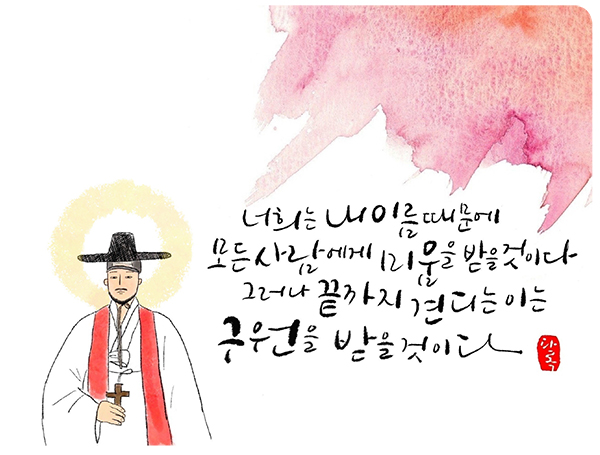 너희는 내 이름 때문에
모든 사람에게 미움을 받을 것이다
그러나 끝까지 견디는 이는
구원을 받을 것이다